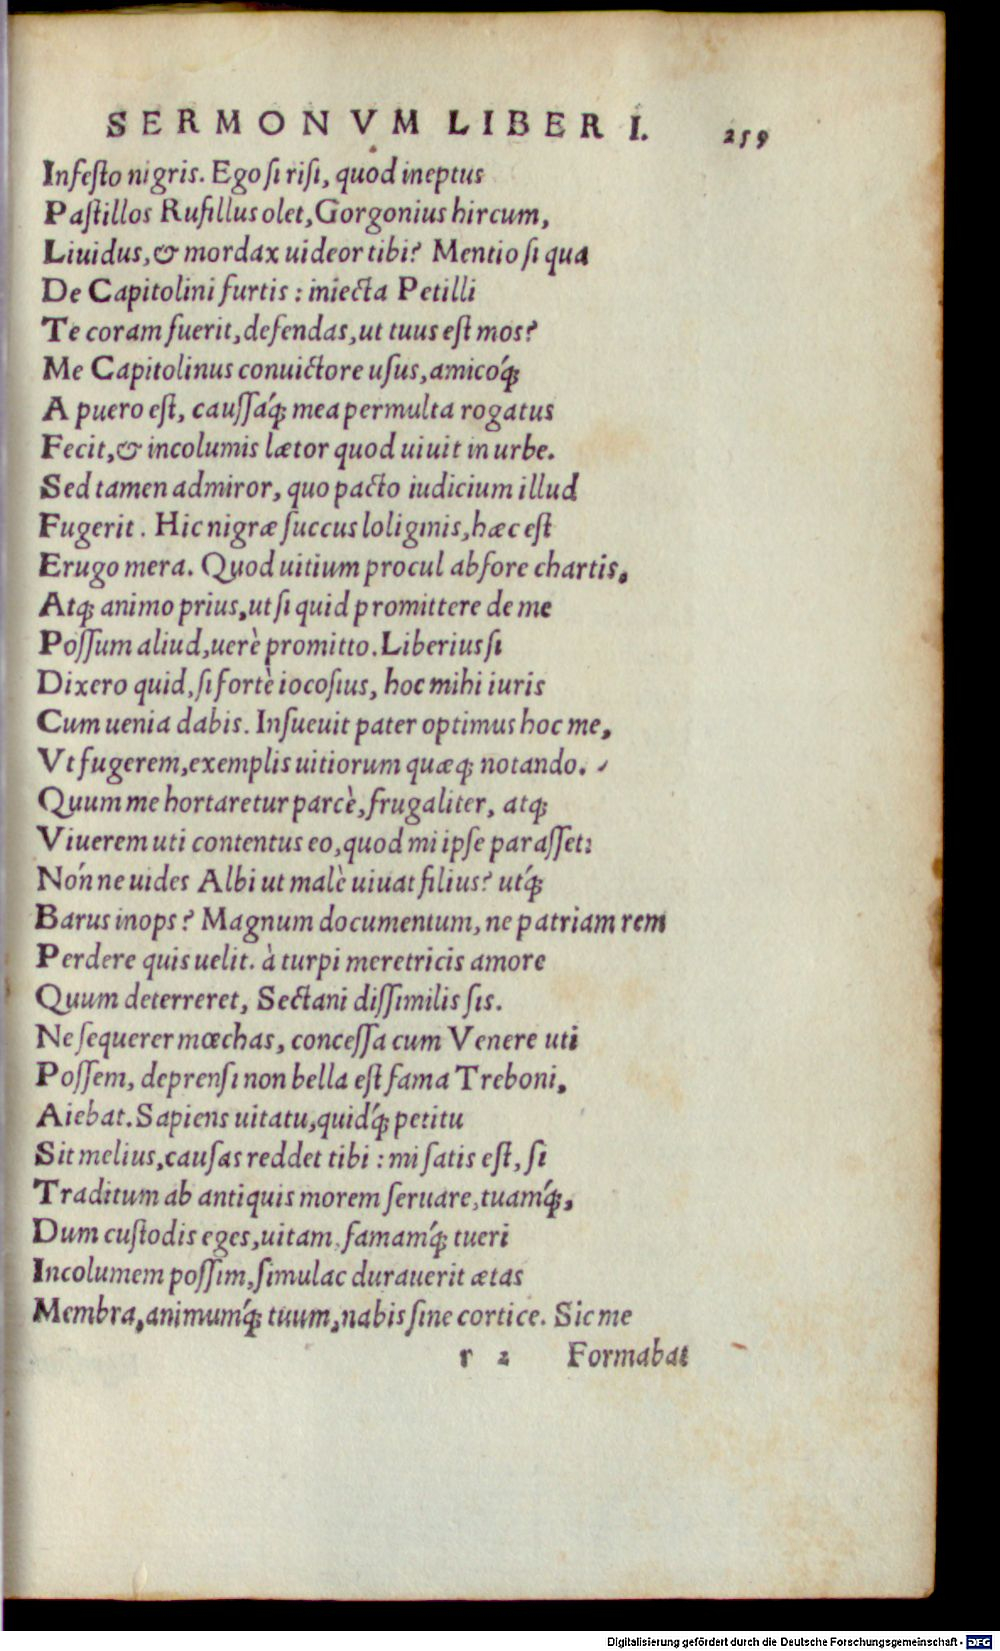 SERMONVM LIBER I. 259
Infesto nigris. Ego si risi, quod ineptus
Pastillos Rufillus olet, Gorgonius hircum,
Liuidus, & mordax uideor tibi? Mentio si qua
De Capitolini furtis : iniecta Petilli
Te coram fuerit, defendas, ut tuus est mos?
Me Capitolinus conuictore usus, amicóq;
A puero est, caussáq; mea permulta rogatus
Fecit, & incolumis lætor quod uiuit in urbe.
Sed tamen admiror, quo pacto iudicium illud
Fugerit. Hic nigræ succus loliginis, hæc est
Erugo mera. Quod uitium procul abfore chartis,
Atq; animo prius, ut si quid promittere de me
Possum aliud, uerè promitto. Liberius si
Dixero quid, si fortè iocosius, hoc mihi iuris
Cum uenia dabis. Insueuit pater optimus hoc me,
Vt fugerem, exemplis uitiorum quæq; notando.
Quum me hortaretur parcè, frugaliter, atq;
Viuerem uti contentus eo, quod mi ipse parasset:
Nónne uides Albi ut malè uiuat filius? utq́;
Barus inops? Magnum documentum, ne patriam rem
Perdere quis uelit. à turpi meretricis amore
Quum deterreret, Sectani dissimilis sis.
Ne sequerer mœchas, concessa cum Venere uti
Possem, deprensi non bella est fama Treboni,
Aiebat. Sapiens uitatu, quidq́; petitu
Sit melius, causas reddet tibi : mi satis est, si
Traditum ab antiquis morem seruare, tuamq́;,
Dum custodis eges, uitam, famamq́; tueri
Incolumem possim, simulac durauerit ætas
Membra, animumq́; tuum, nabis sine cortice. Sic me
r 2 Formabat
Digitalisierung gefördert durch die Deutsche Forschungsgemeinschaft - DFG